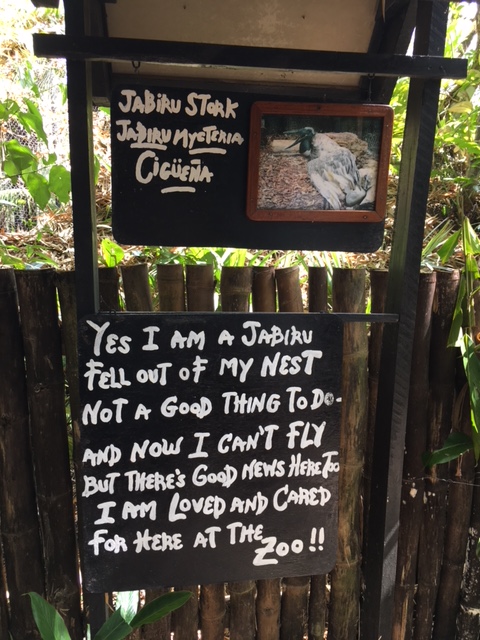 JABIRU STORK
JABIRU MYCTERIA
CIGÜEÑA
YES I AM A JABIRU
FELL OUT OF MY NEST
NOT A GOOD THING TO DO-
AND NOW I CAN'T FLY
BUT THERE'S GOOD NEWS HERE TOO
I AM LOVED AND CARED
FOR HERE AT THE
ZOO!!